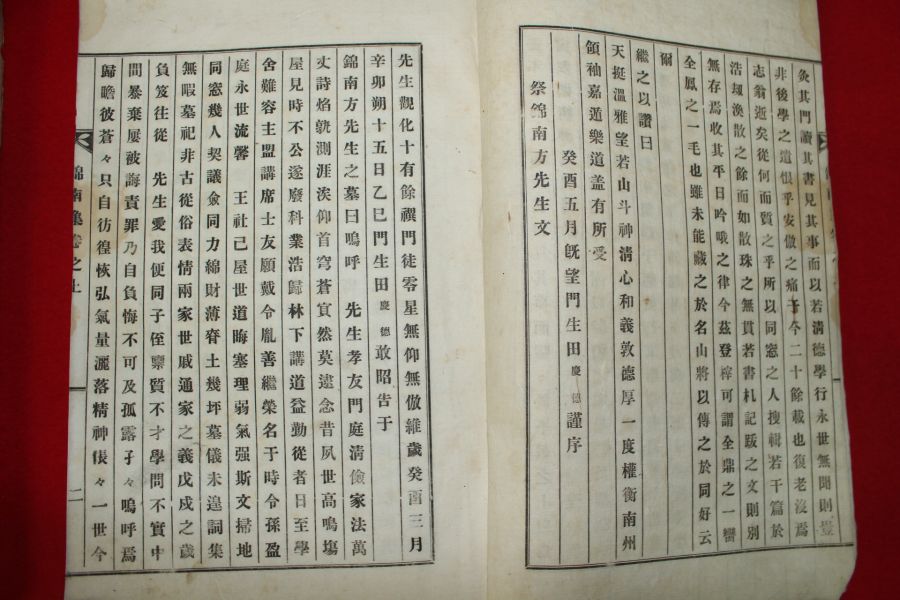 灸其門讀其書見其事而以若淸德學行永世無聞則豈
非後學之遺恨乎安倣之痛于今二十餘載也復老沒焉
志翁逝矣從何而質之乎所以同窓之人搜輯若干篇於
浩刼渙散之餘而如散珠之無貫若書札記跋之文則別
無存焉收其平日吟哦之律今玆登梓可謂全鼎之一臠
全鳳之一毛也雖未能藏之於名山將以傳之於同好云
爾
繼之以讚曰
天挺溫雅望若山斗神淸心和義敦德厚一度權衡南州
領袖嘉遁樂道盖有所受
癸酉五月旣望門生田慶德謹序
祭錦南方先生文
先生觀化十有餘禩門徒零星無仰無倣維歲癸酉三月
辛卯朔十五日乙巳門生田慶德敢昭告于
錦南方先生之墓曰嗚呼 先生孝友門庭淸儉家法萬
丈詩焰孰測涯涘仰首穹蒼寞然莫逮念昔夙世高鳴塲
屋見時不公遂廢科業浩歸林下講道益勤從者日至學
舍難容主盟講席士友願戴令胤善繼榮名于時令孫盈
庭永世流馨 王社已屋世道晦塞理弱氣强斯文掃地
同窓幾人契議僉同力綿財薄脊土幾坪墓儀未遑詞集
無暇墓祀非古從俗表情兩家世戚通家之義戊戌之歲
負笈往從 先生愛我便同子侄稟質不才學問不實中
間暴棄屢被誨責罪乃自負悔不可及孤露孑々嗚呼焉
歸瞻彼蒼々只自彷徨恢弘氣量灑落精神悵々一世今
錦南集卷之上
二